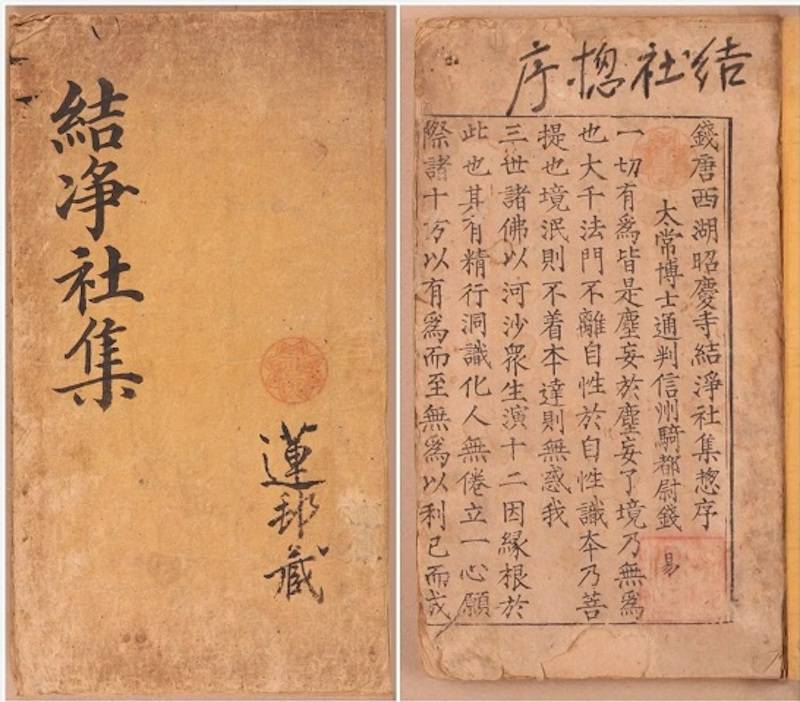 結淨社集
蓮邦藏
结社揔序
錢唐西湖昭慶寺結淨社集揔序
太常博士通判信州騎都尉錢易
一切有爲皆是塵妄於塵妄了境乃無爲
也大千法門不離自性於自性識本乃菩
提也境泯則不着本達則無惑我
三世諸佛以河沙衆生演十二因緣根於
此也其有精行洞識化人無倦立一心願
際諸十方以有爲而至無爲以利已而成